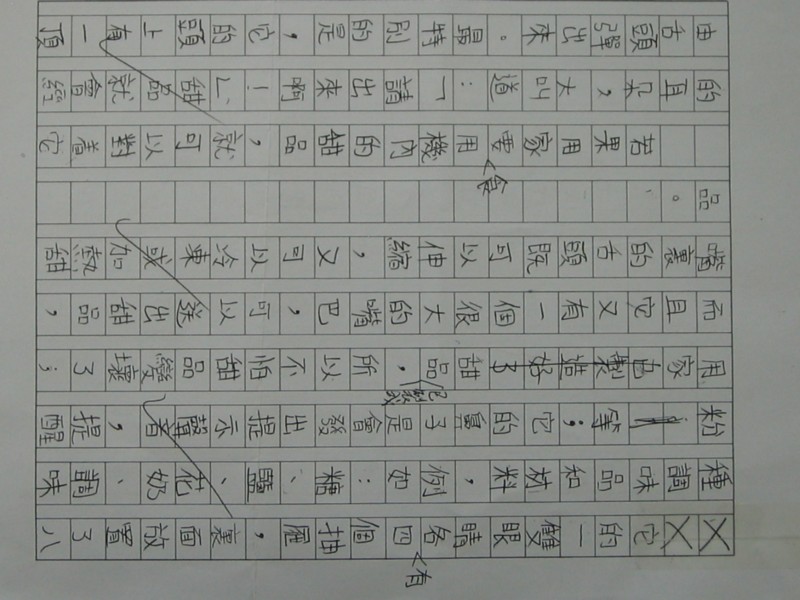 它的一雙眼睛各有四個抽匣,裏面放置了八
種調味品和材料,例如:糖、鹽、花奶、調味
粉等;它的鼻子是會發出提示聲着,提醒
用家甜品,所以不怕甜品變壞了;
而且它又有一個很大的嘴巴,可以送出甜品,
嘴裏的舌頭既可以伸縮,又可以冷凍或加熱甜
品。
若果用家要食用機內的甜品,就可以對着它
的耳朵,大叫道:「請出來啊!」甜品就會經
由舌頭彈出來。最特別的是,它的頭上有一頂